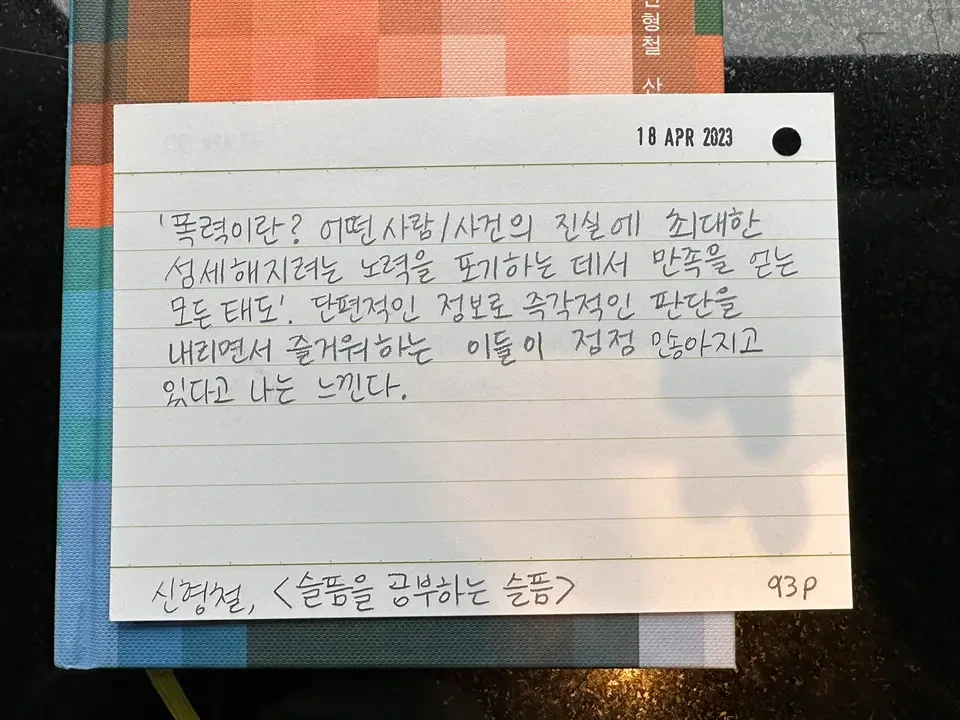 형철 산
18 APR 2023
'폭력이란? 어떤 사람/사건의 진실에 최대한
섬세해지려는 노력을 포기하는 데서 만족을 얻는
모든 태도'. 단편적인 정보로 즉각적인 판단을
내리면서 즐거워하는 이들이 점점 많아지고
있다고 나는 느낀다.
신형철, <슬픔을 공부하는 슬픔>
93p